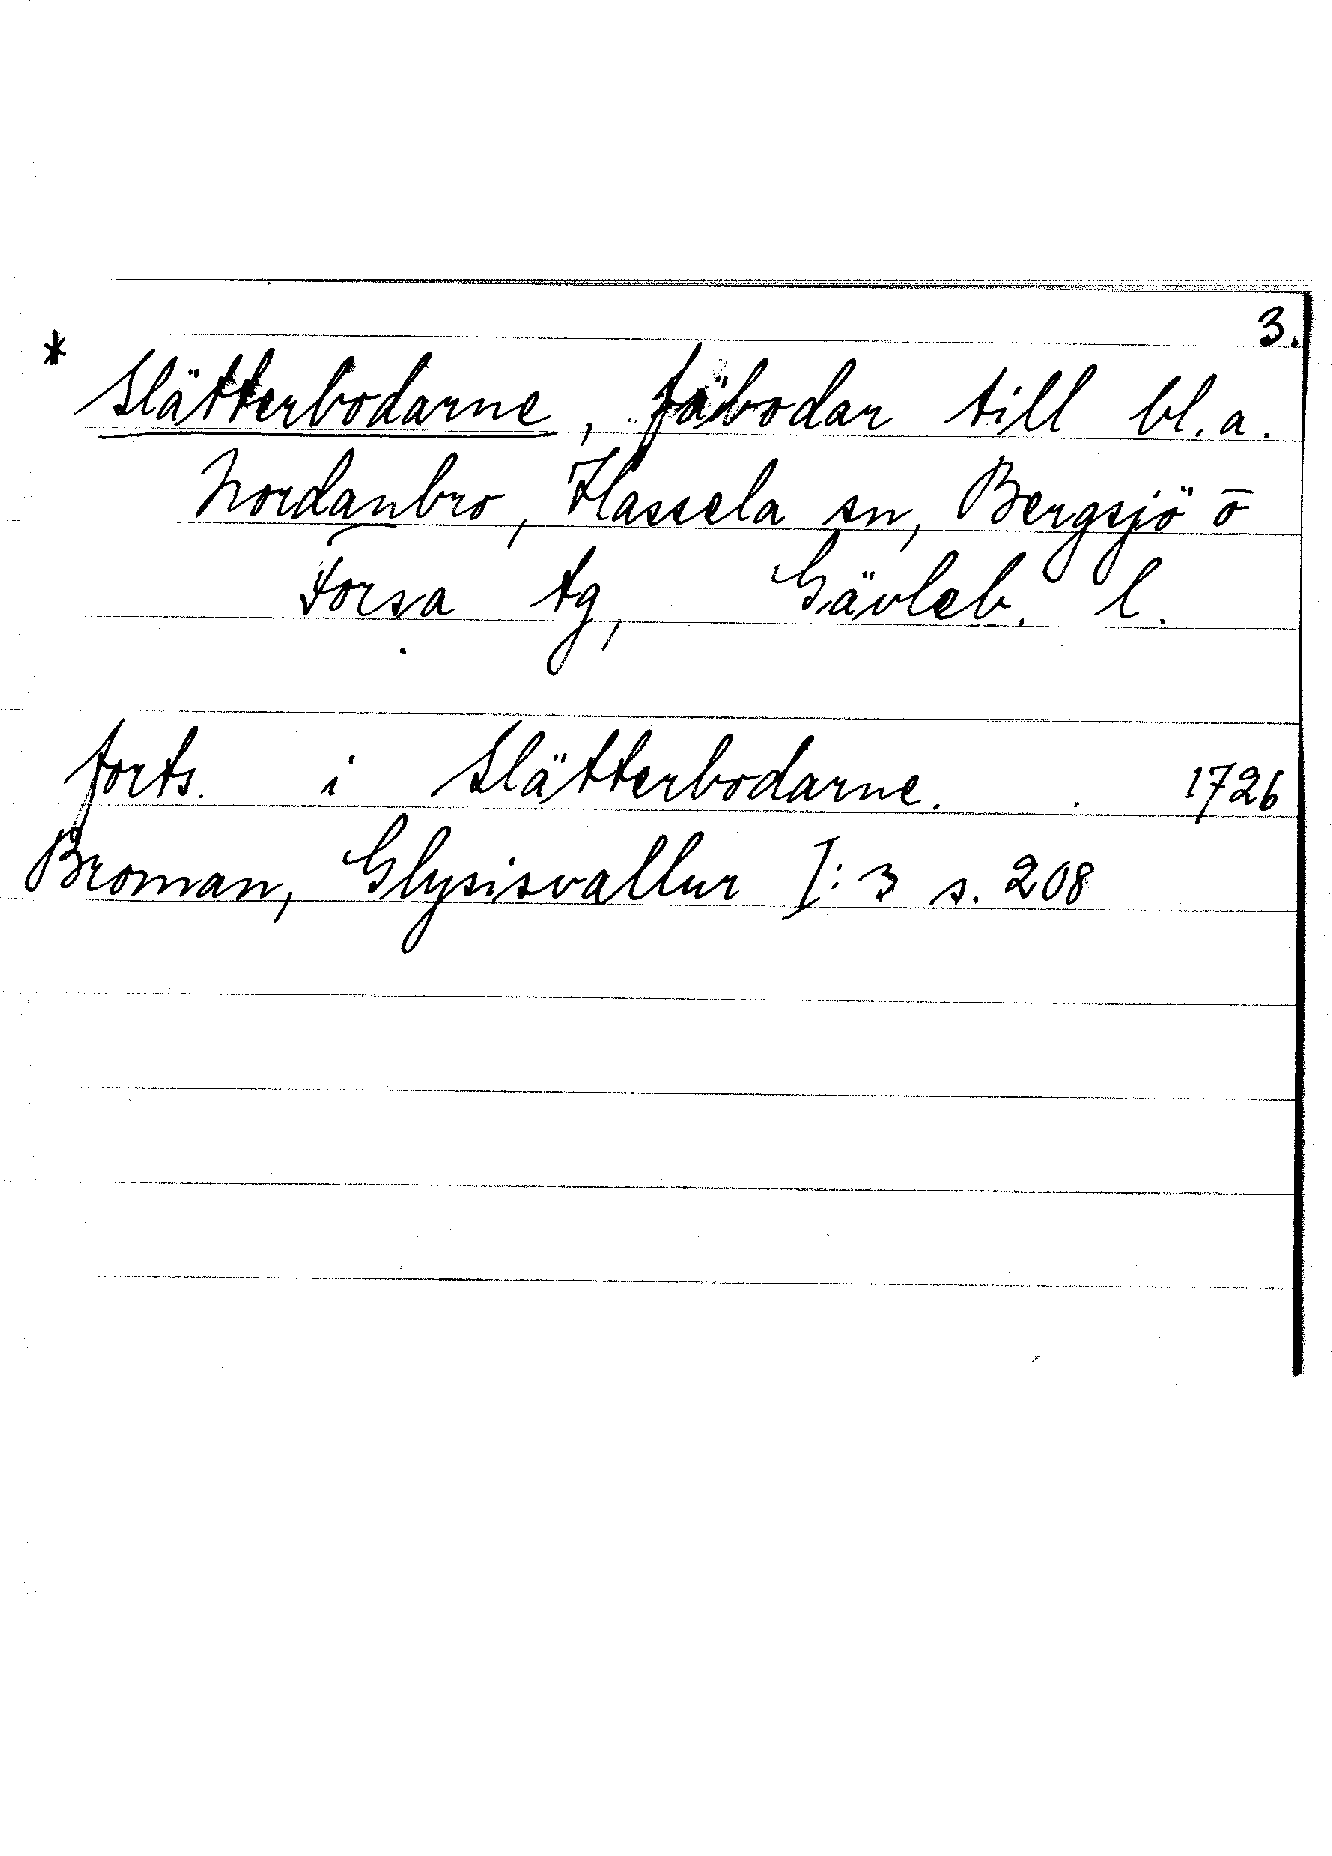 3.
* Slätterbodarne, fäbodar till bl. a.
Nordanbro, Hassela sn, Bergsjö o
Forsa tg, Gävleb. l.
forts. i Slätterbodarne. 1726
Broman, Glysisvallur I:3 s. 208